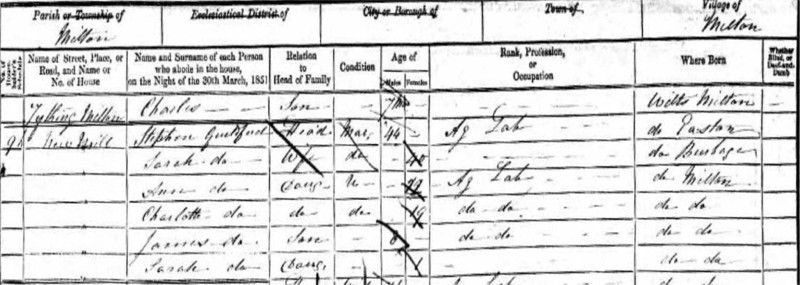 Parish or Township of Ecclesiastical District of City or Borough of Town of Village of
Milton Milton
Name of Street, Place, or Road, and Name or No. of House
Name and Surname of each Person who abode in the house, on the Night of the 30th March, 1851
Relation to Head of Family
Condition
Age of
Males Females
Rank, Profession, or Occupation
Where Born
Whether Blind, or Deaf-and-Dumb
Tything Milton Charles Son Wilts Milton
New Mill Stephen Head Mar 44 Ag Lab do Easton
Sarah do Wife do 42 do Burbage
Ann do Daug U Ag Lab do Milton
Charlotte do do do 19 do do do do
James do Son 8 do do do do
Sarah do Daug 1 do do